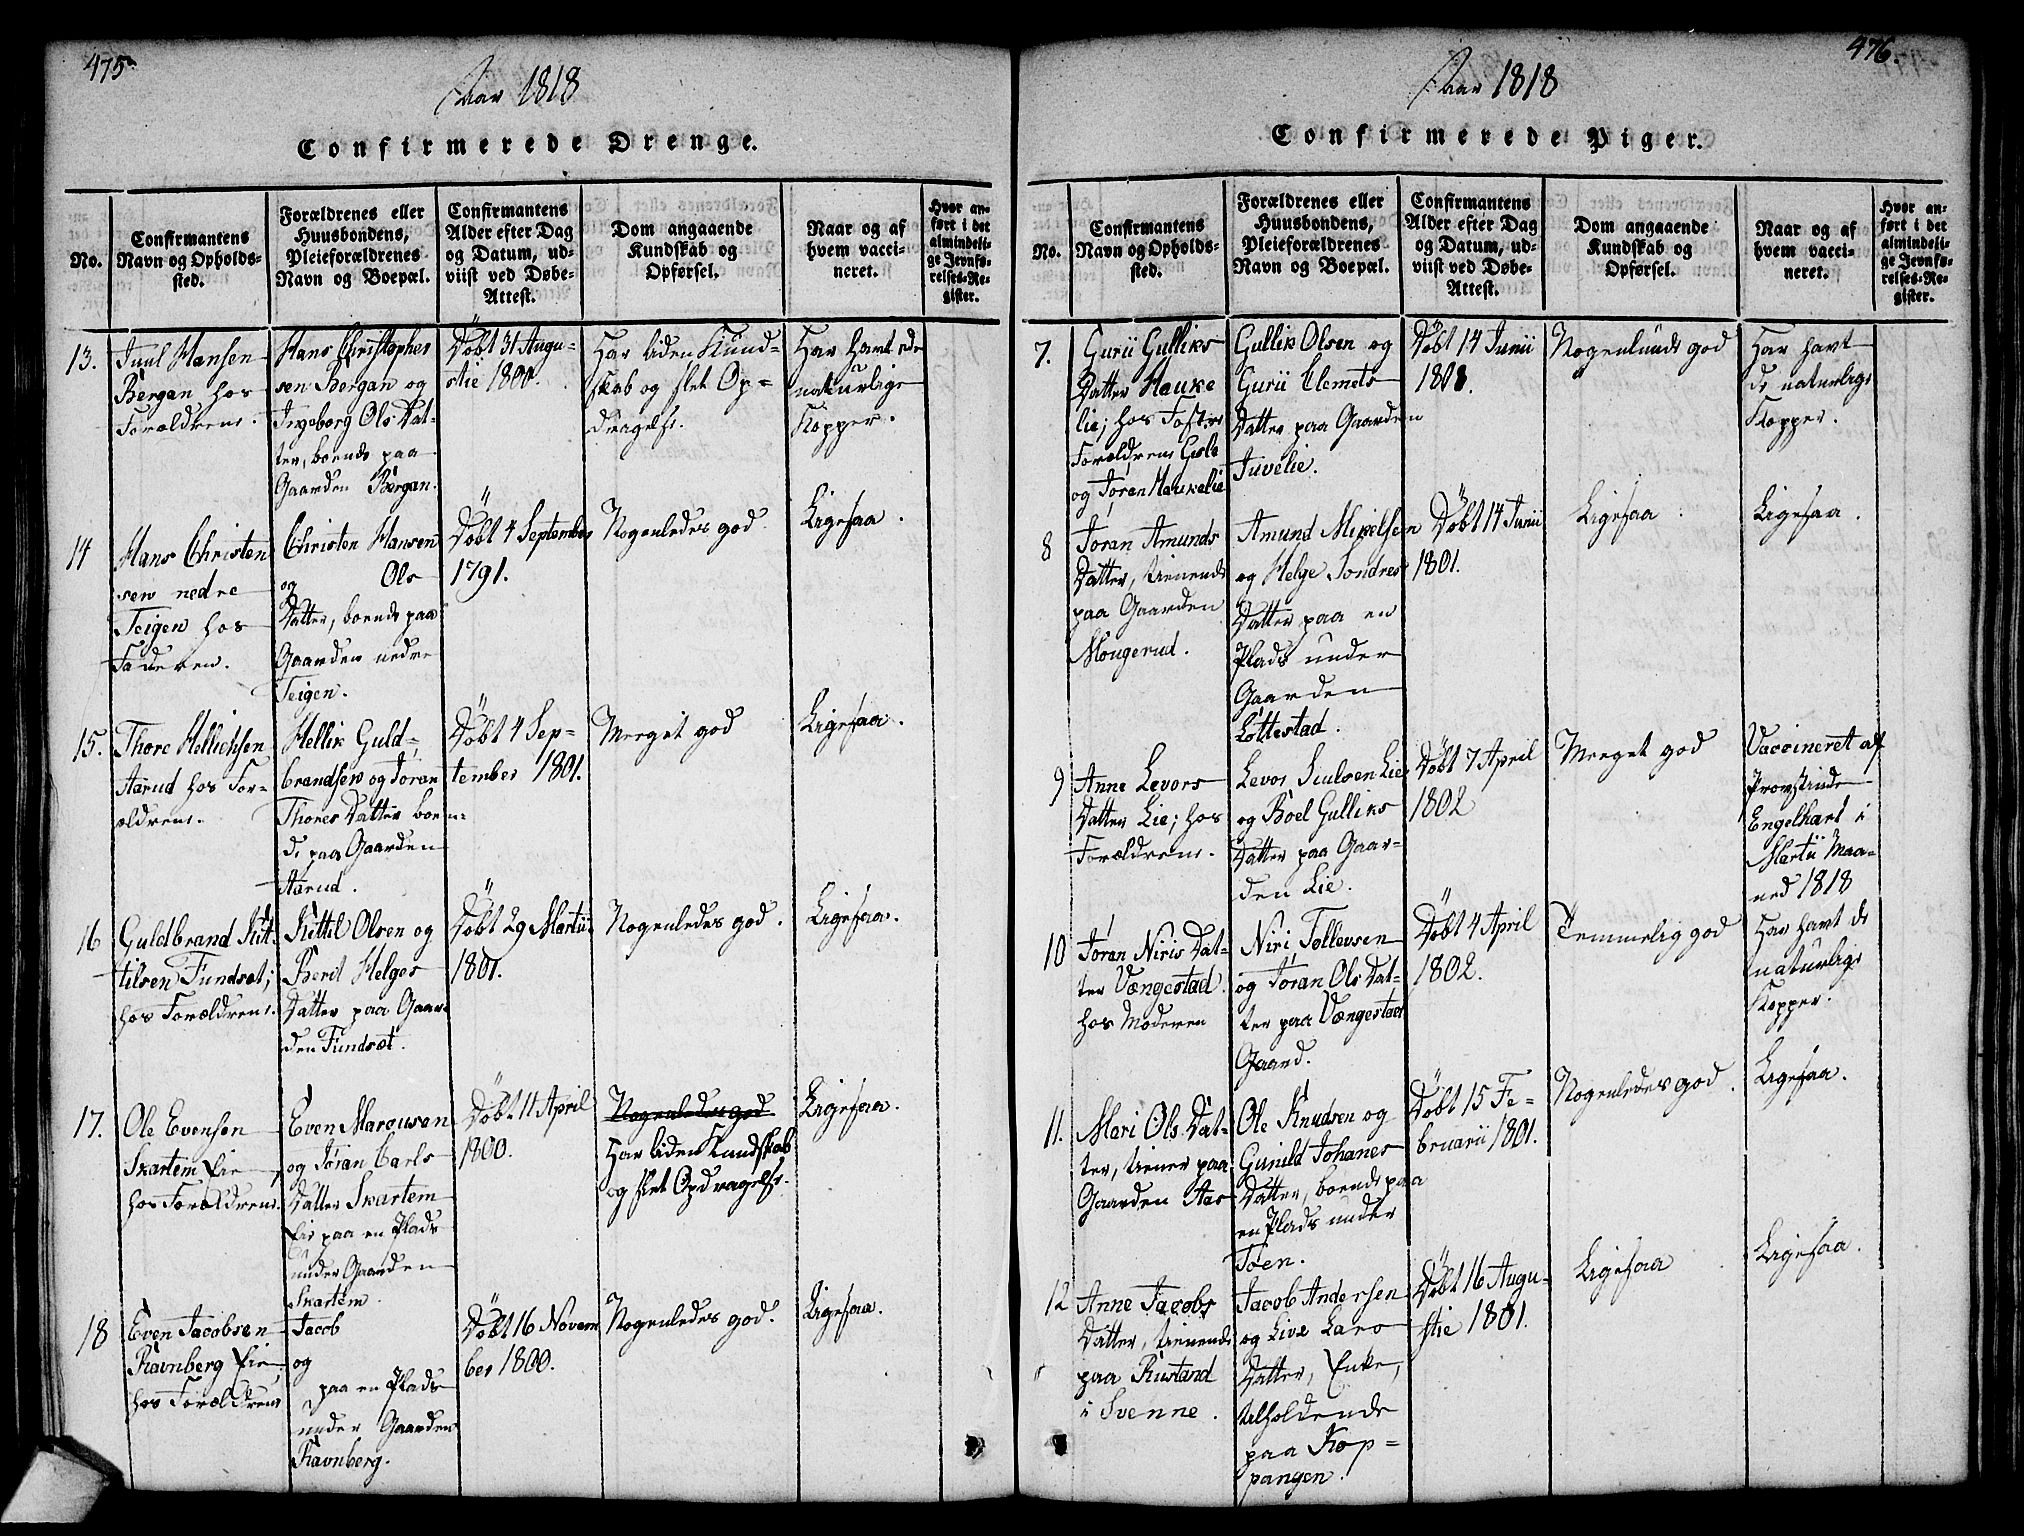 475
Aar 1818
Confirmerede Drenge.
No.
Confirmantens
Navn og Opholds-
sted.
Forældrenes eller
Huusbondens,
Pleieforældrenes
Navn og Boepæl.
Confirmantens
Alder efter Dag
og Datum, ud-
viist ved Døbe-
Attest.
Dom angaaende
Kundskab og
Opførsel.
Naar og af
hvem vacci-
neret.
Hvor an-
ført i det
almindeli-
ge Jevnfø-
relses-Re-
gister.
13.
Juul Hansen
Bergan hos
Forældrene.
Hans Christopher
sen Bergan og
Ingeborg Ols Dat-
ter, boende paa
Gaarden Bergan.
Döbt 31 Augu-
stie 1800.
Har liden Kund-
skab og slet Op-
dragelse.
Har havt de
naturlige
Kopper.
14
Hans Christen
sen nedre
Teigen hos
Faderen.
Christen Hansen
og Ols
Datter, boende paa
Gaarden nedre
Teigen.
Döbt 4 September
1791.
Nogenledes god
Ligesaa.
15.
Thore Hellichsen
Aarud hos For-
ældrene.
Hellik Guld-
brandsen og Jøran
Thores Datter boen-
de paa Gaarden
Aarud.
Döbt 4 Sep-
tember 1801.
Meeget god
Ligesaa.
16
Guldbrand Kit-
tilsen Fundsæt;
hos Forældrene.
Kittil Olsen og
Berit Helges
Datter paa Gaar-
den Fundsæt.
Döbt 29 Martii
1801.
Nogenledes god.
Ligesaa.
17.
Ole Evensen
Skartem Eie
hos Forældrene.
Even Marcusen
og Jøran Carls
Datter Skartem
Eie paa en Plads
under Gaarden
Skartem.
Döbt 11 April
1800.
Nogenledes god
Har liden Kundskab
og slet Opdragelse.
Ligesaa.
18
Even Jacobsen
Ravnberg Eie
hos Forældrene
Jacob
og
paa en Plads
under Gaarden
Ravnberg.
Döbt 16 Novem
ber 1800.
Nogenledes god.
Ligesaa.
476.
Aar 1818
Confirmerede Piger.
No.
Confirmantens
Navn og Opholds-
sted.
Forældrenes eller
Huusbondens,
Pleieforældrenes
Navn og Boepæl.
Confirmantens
Alder efter Dag
og Datum, ud-
viist ved Døbe-
Attest.
Dom angaaende
Kundskab og
Opførsel.
Naar og af
hvem vacci-
neret.
Hvor an-
ført i det
almindeli-
ge Jevnfø-
relses-Re-
gister.
7.
Gurii Gulliks
Datter Hauke
lie; hos Foster
Forældrene Gisle
og Jøran Haukelie
Gullik Olsen og
Gurii Clemets
Datter paa Gaarden
Juvelie.
Döbt 14 Junii
Nogenlunde god
Har havt
de naturlige
Kopper.
8
Jøran Amunds
Datter, tienende
paa Gaarden
Mongerud.
Amund Mikelsen
og Helge Tondres
Datter paa en
Plads under
Gaarden
Løttestad.
Döbt 14 Junii
1801.
Ligesaa
Ligesaa.
9
Anne Levors
Datter Lie; hos
Forældrene.
Levor Siulsen Lie
og Boel Gulliks
Datter paa Gaar-
den Lie.
Döbt 7 April
1802
Meeget god
Vaccineret af
Provstinde
Engelhart i
Martii Maa-
ned 1818
10
Jøran Niris Dat-
ter Vængestad
hos Moderen
Niri Tollevsen
og Jøran Ols Dat-
ter paa Vængestad
Gaard.
Döbt 4 April
1802.
Temmelig god
Har havt de
naturlige
Kopper.
11.
Mari Ols Dat-
ter, tiener paa
Gaarden Aas
Ole Knudsen og
Gunild Johanes
Datter, boende paa
en Plads under
Töen.
Döbt 15 Fe-
bruarii 1801.
Nogenledes god.
Ligesaa.
12
Anne Jacobs
Datter, tienende
paa Rustand
i Svenne.
Jacob Andersen
og Live Lars
Datter, Enke,
tilholdende
paa Kop-
pangen.
Döbt 16 Augu-
stie 1801.
Ligesaa
Ligesaa.